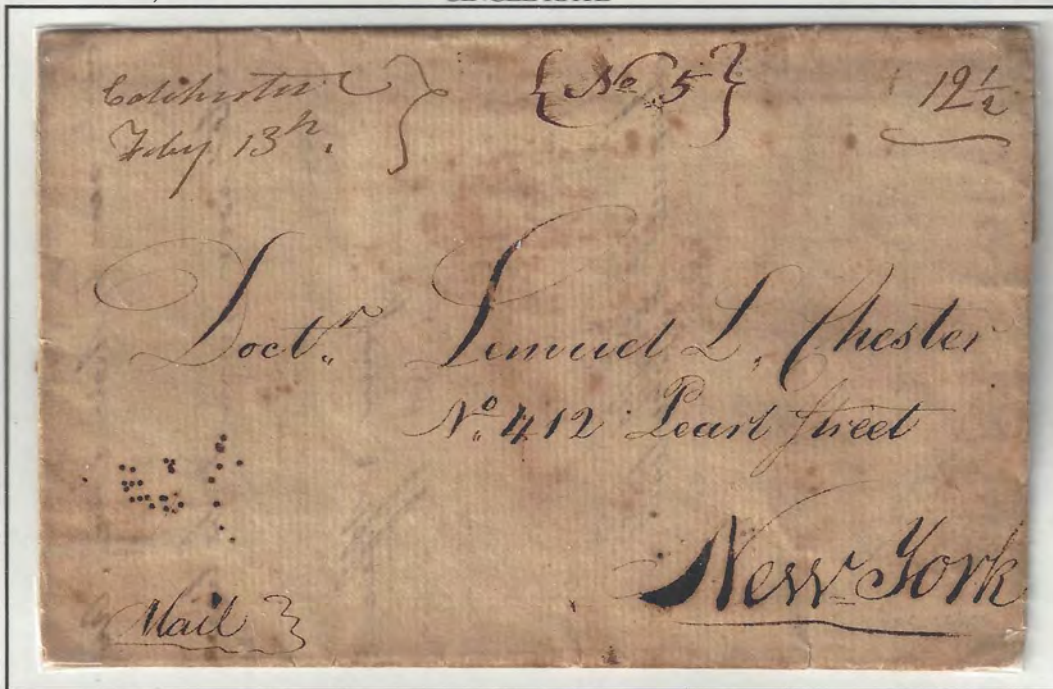 Colchester
Feby 13th.
{No 5}
12 1/2
Doctr. Lemuel L. Chester
No. 412 Pearl Street
New York
Mail